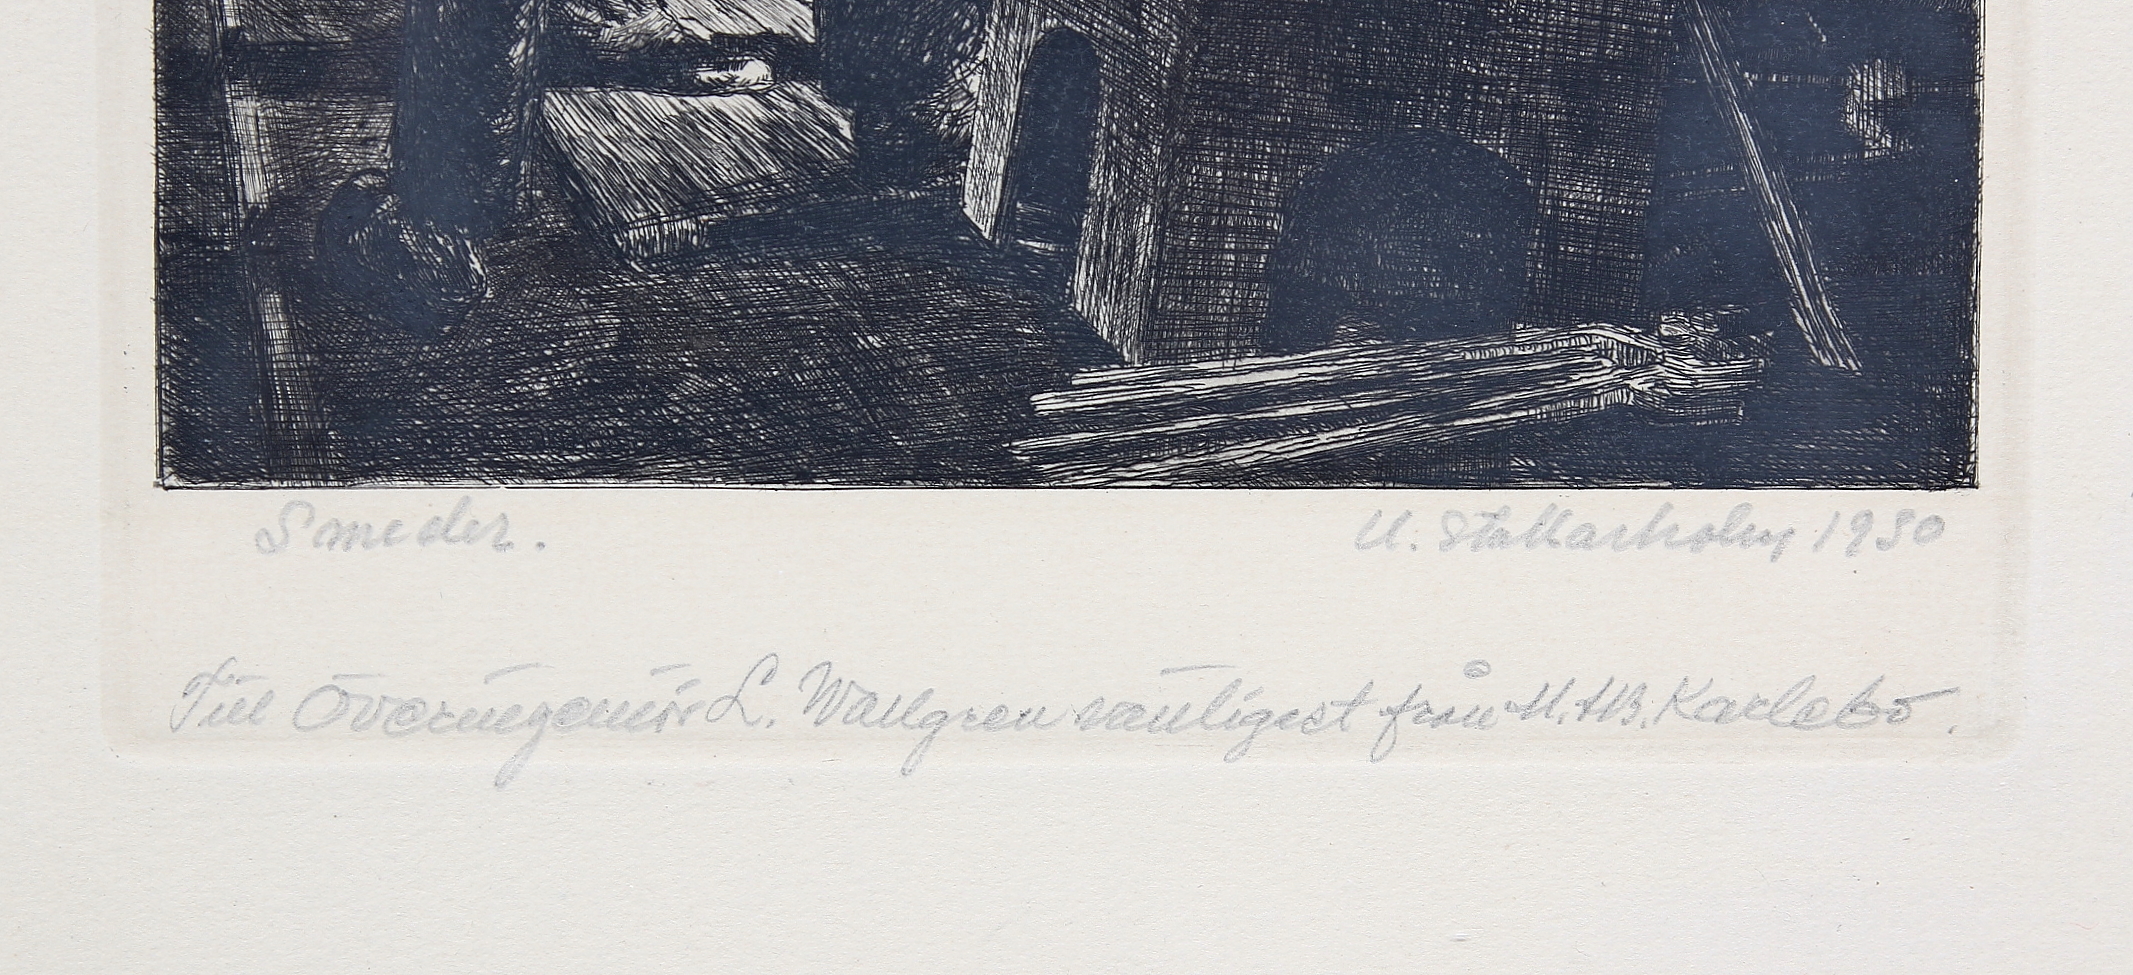 Smeder.
U. Stallarholm 1930
Till Överingeniör L. Wallgren vänligest från H. AB. Karlebo.